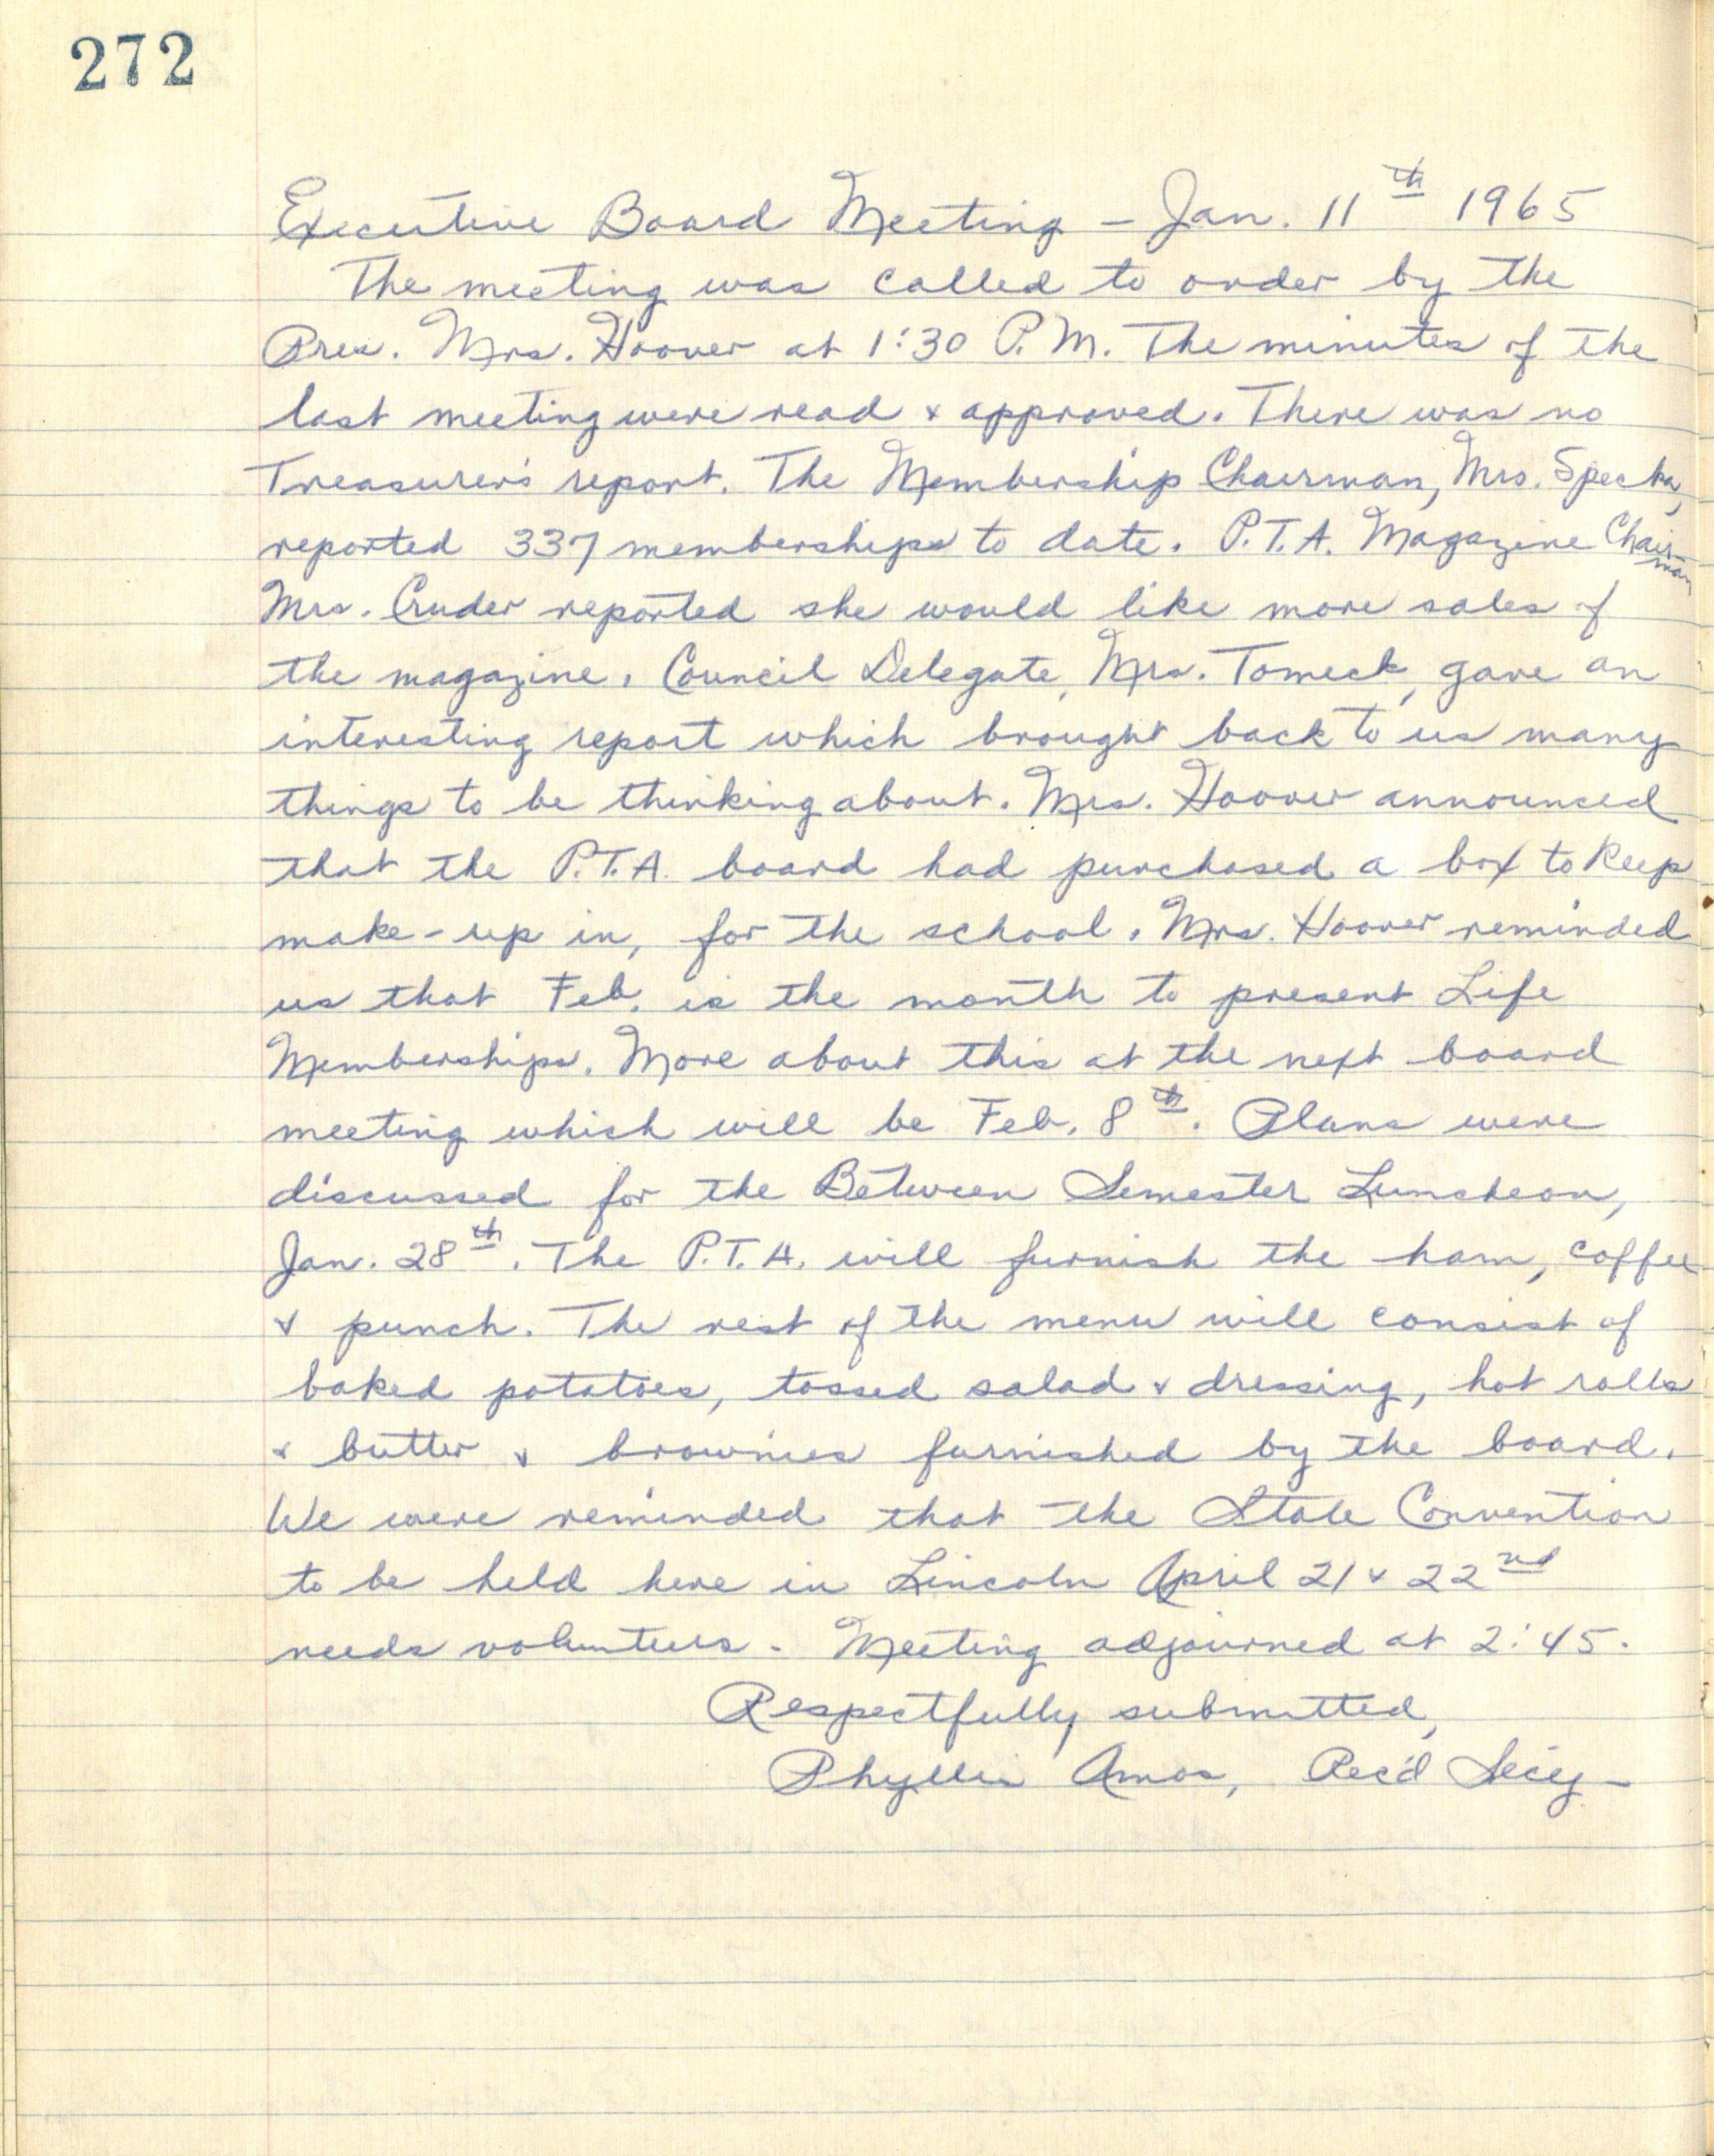 272
Executive Board Meeting – Jan. 11th 1965
The meeting was called to order by the
Pres. Mrs. Hoover at 1:30 P.M. The minutes of the
last meeting were read & approved. There was no
Treasurer's report. The Membership Chairman, Mrs. Specka,
reported 337 memberships to date. P.T.A. Magazine Chairman
Mrs. Cruder reported she would like more sales of
the magazine. Council Delegate, Mrs. Tomeck, gave an
interesting report which brought back to us many
things to be thinking about. Mrs. Hoover announced
that the P.T.A. board had purchased a box to keep
make-up in, for the school. Mrs. Hoover reminded
us that Feb. is the month to present Life
Memberships. More about this at the next board
meeting which will be Feb. 8th. Plans were
discussed for the Between Semester Luncheon,
Jan. 28th. The P.T.A. will furnish the ham, coffee
& punch. The rest of the menu will consist of
baked potatoes, tossed salad & dressing, hot rolls
& butter & brownies furnished by the board.
We were reminded that the State Convention
to be held here in Lincoln April 21 & 22nd
needs volunteers. Meeting adjourned at 2:45.
Respectfully submitted,
Phyllis Amos, Rec'd Sec'y –